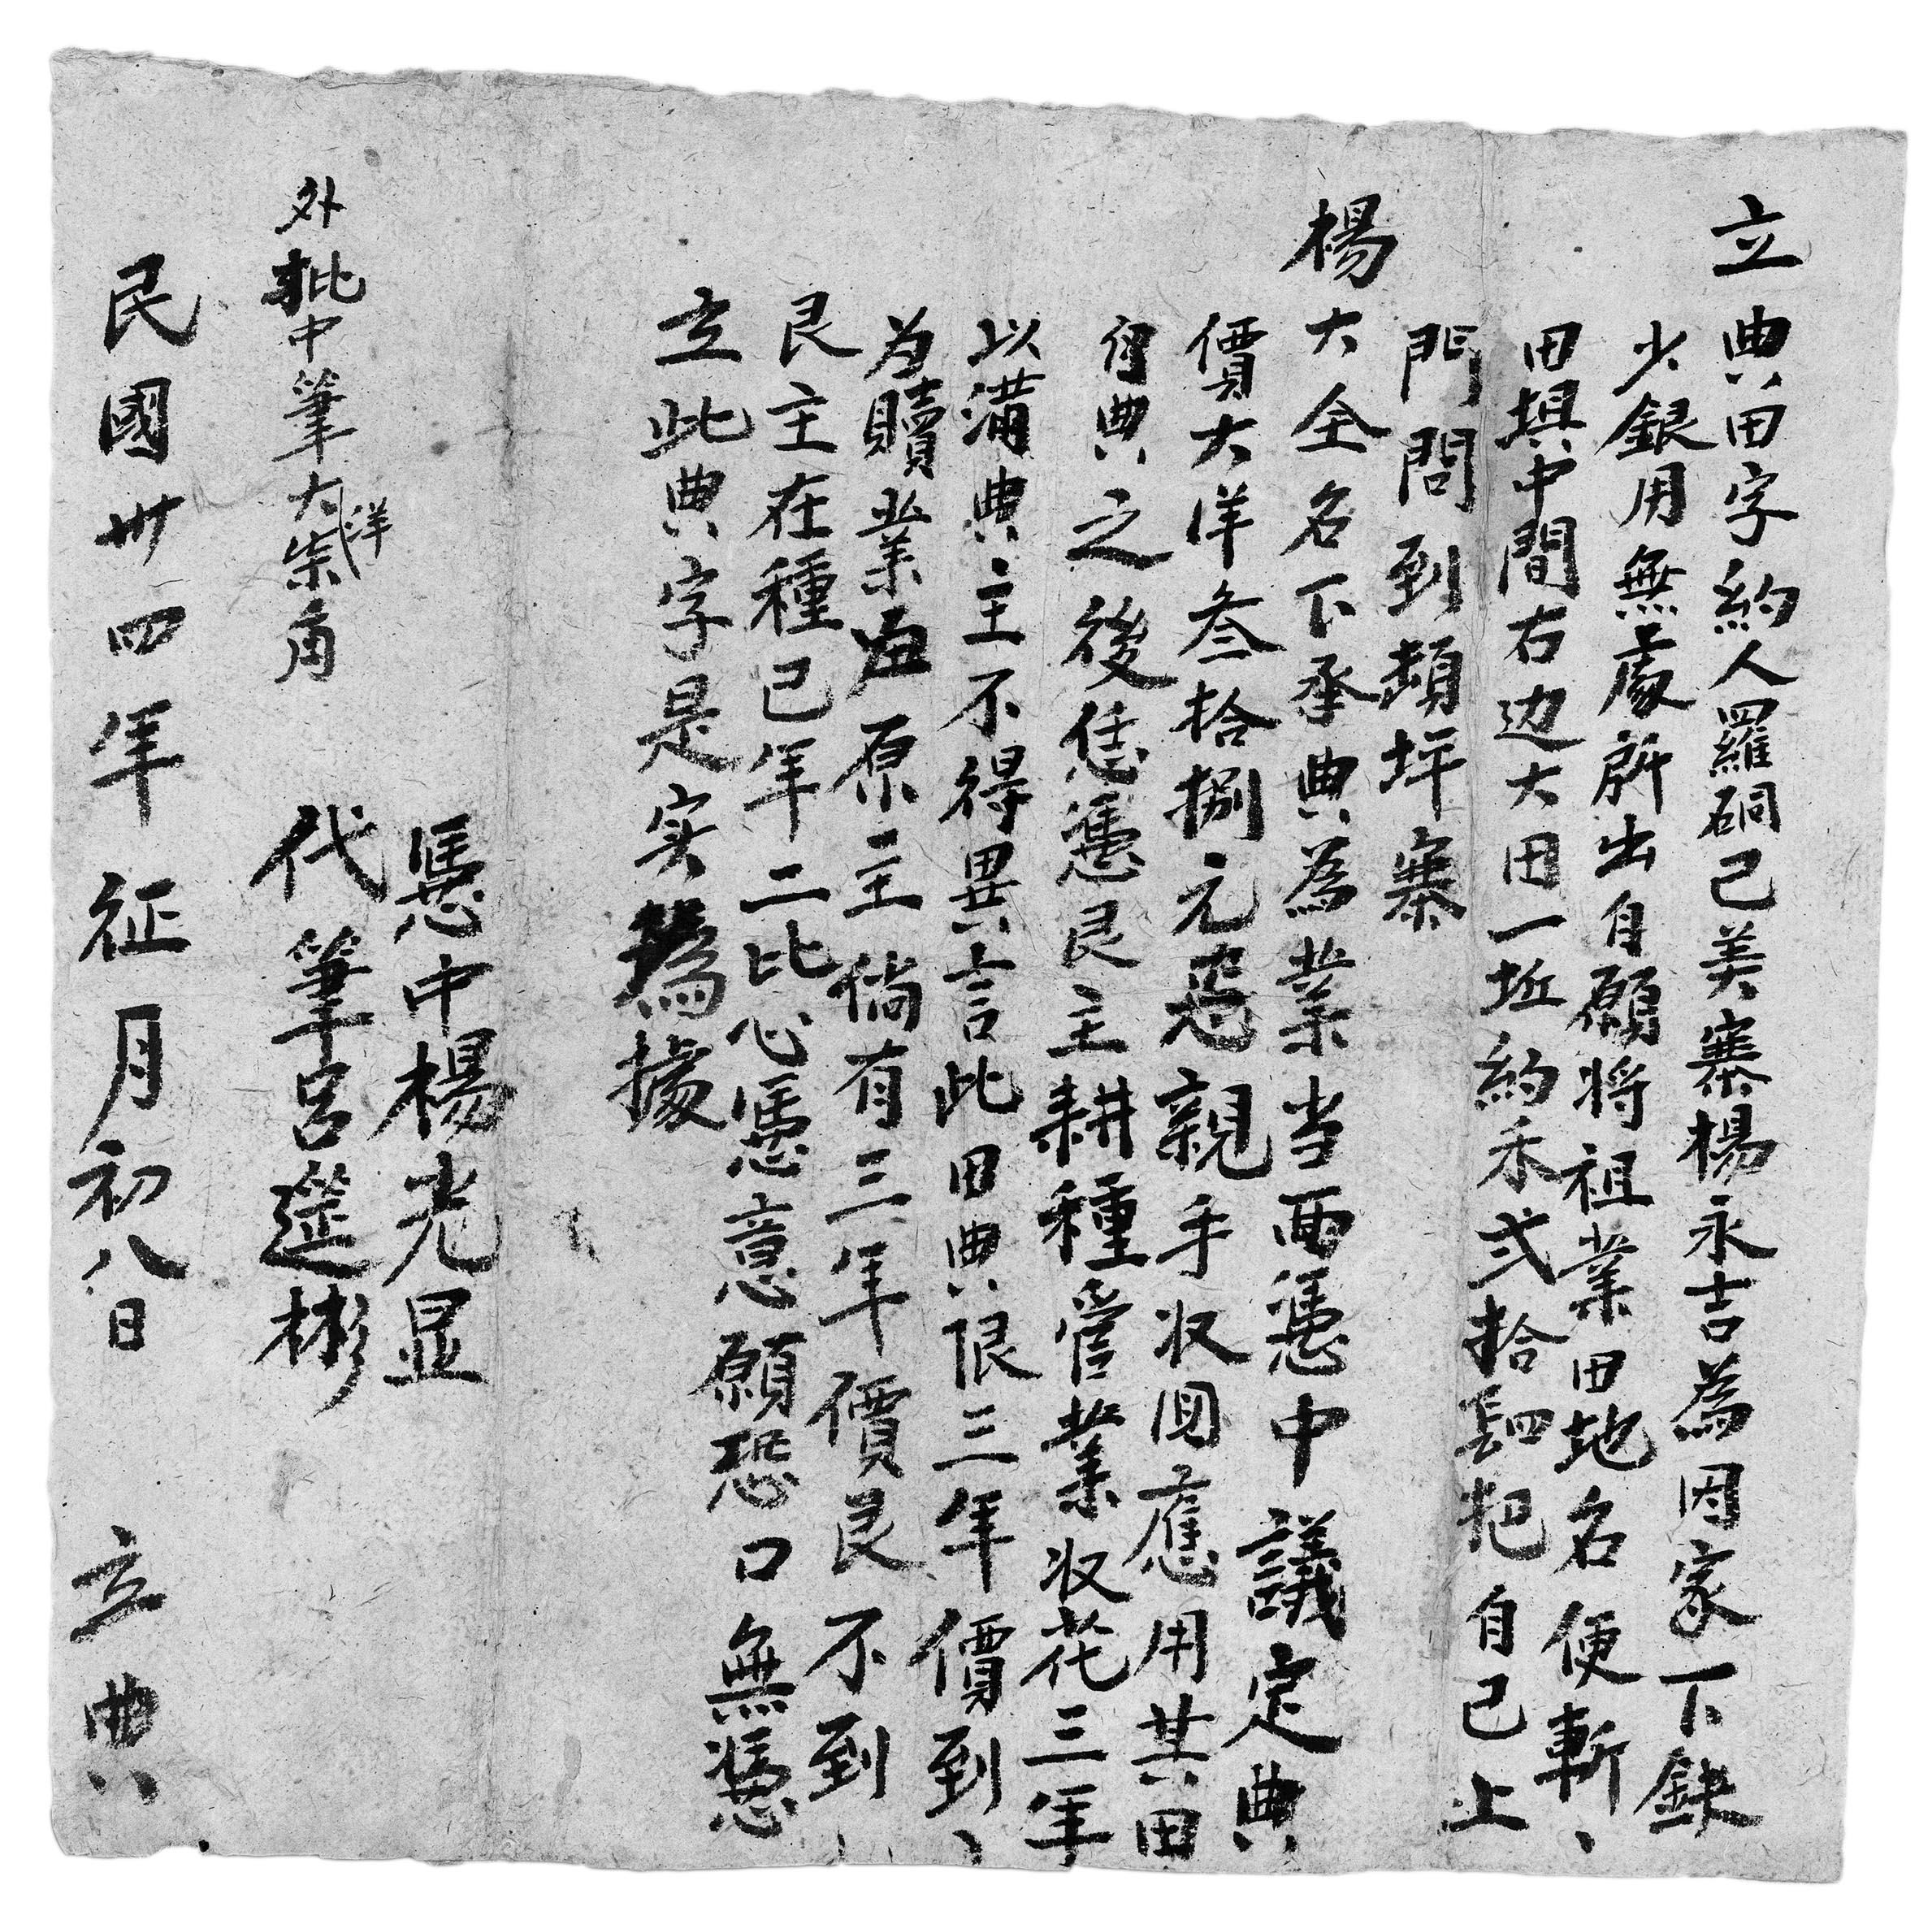 立典田字約人羅硐己美寨楊永吉為因家下缺
少銀用無處所出自願将祖業田地名便斬、
田埧中間右边大田一坵約禾弍拾四把自己上
門問到頼坪寨
楊大全名下承典為業当面憑中議定典
價大洋叁拾捌元 親手収囬應用其田
典之後恁憑艮主耕種管業収花三年
以満典主不得異言此田典恨三年價到、
为贖業 原主倘有三年價艮不到
艮主在種己年二比心憑意願恐口無憑
立此典字是实為據
憑中楊光显
代筆呂 彬
外批中筆大洋 角
民國卅四年征月初八日 立典